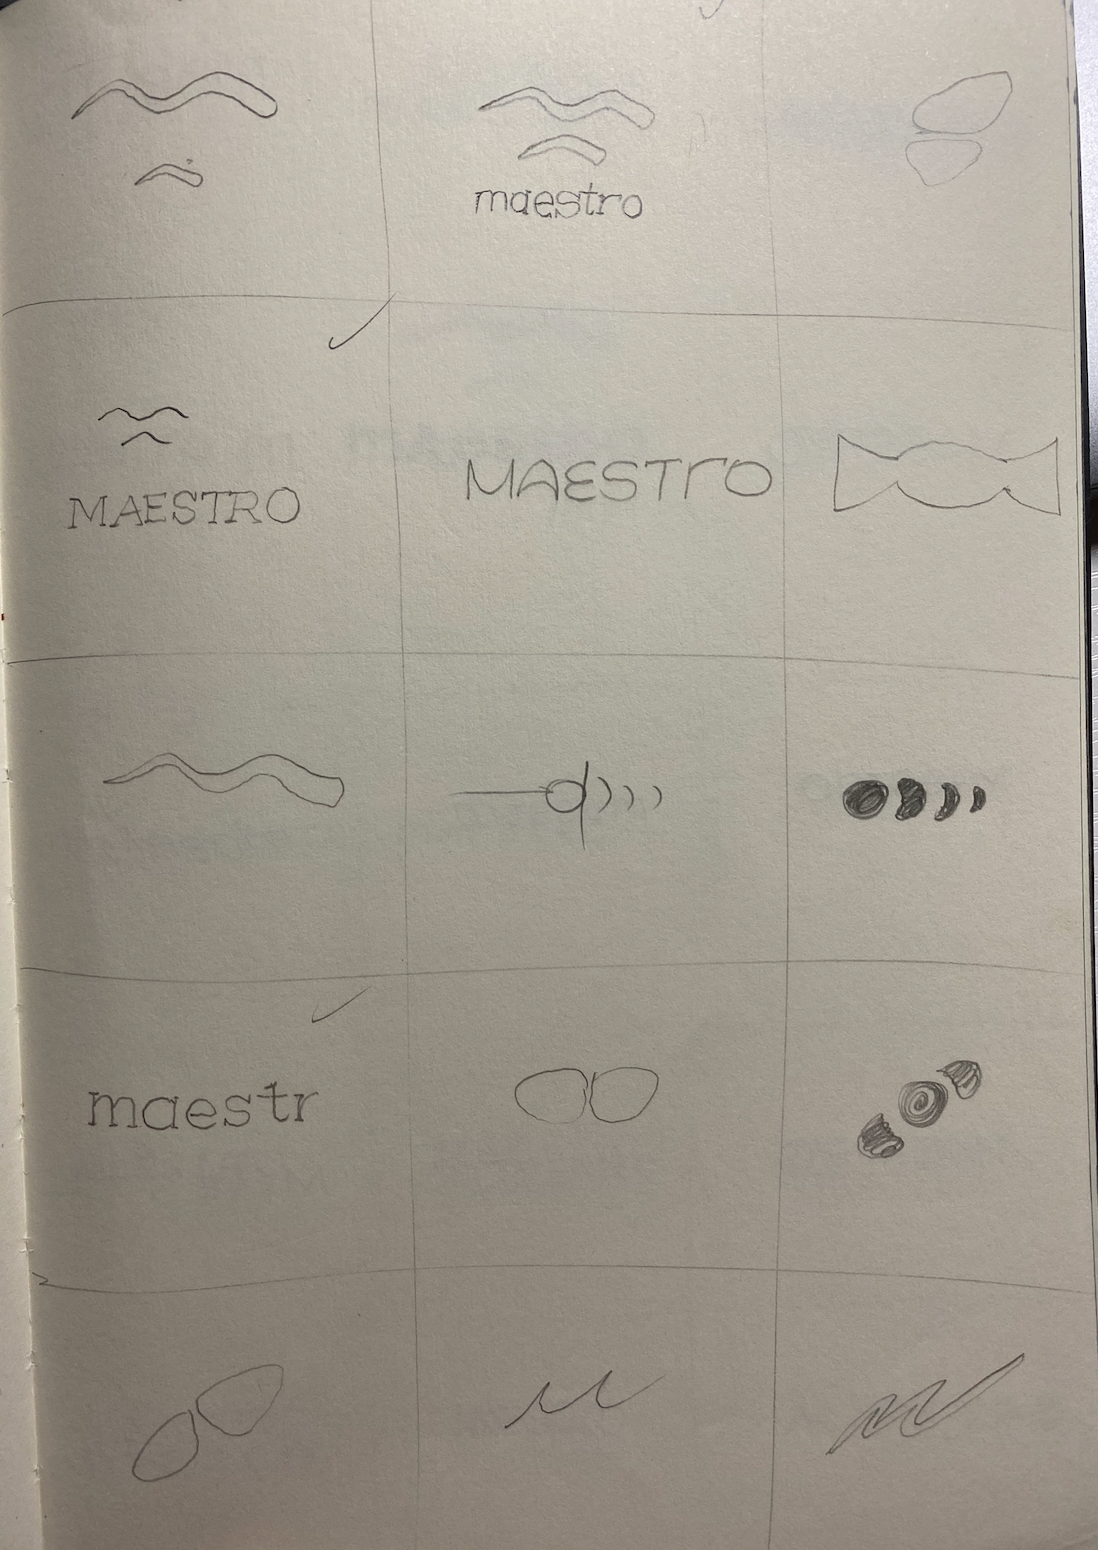 maestro
MAESTRO
MAESTrO
maestr